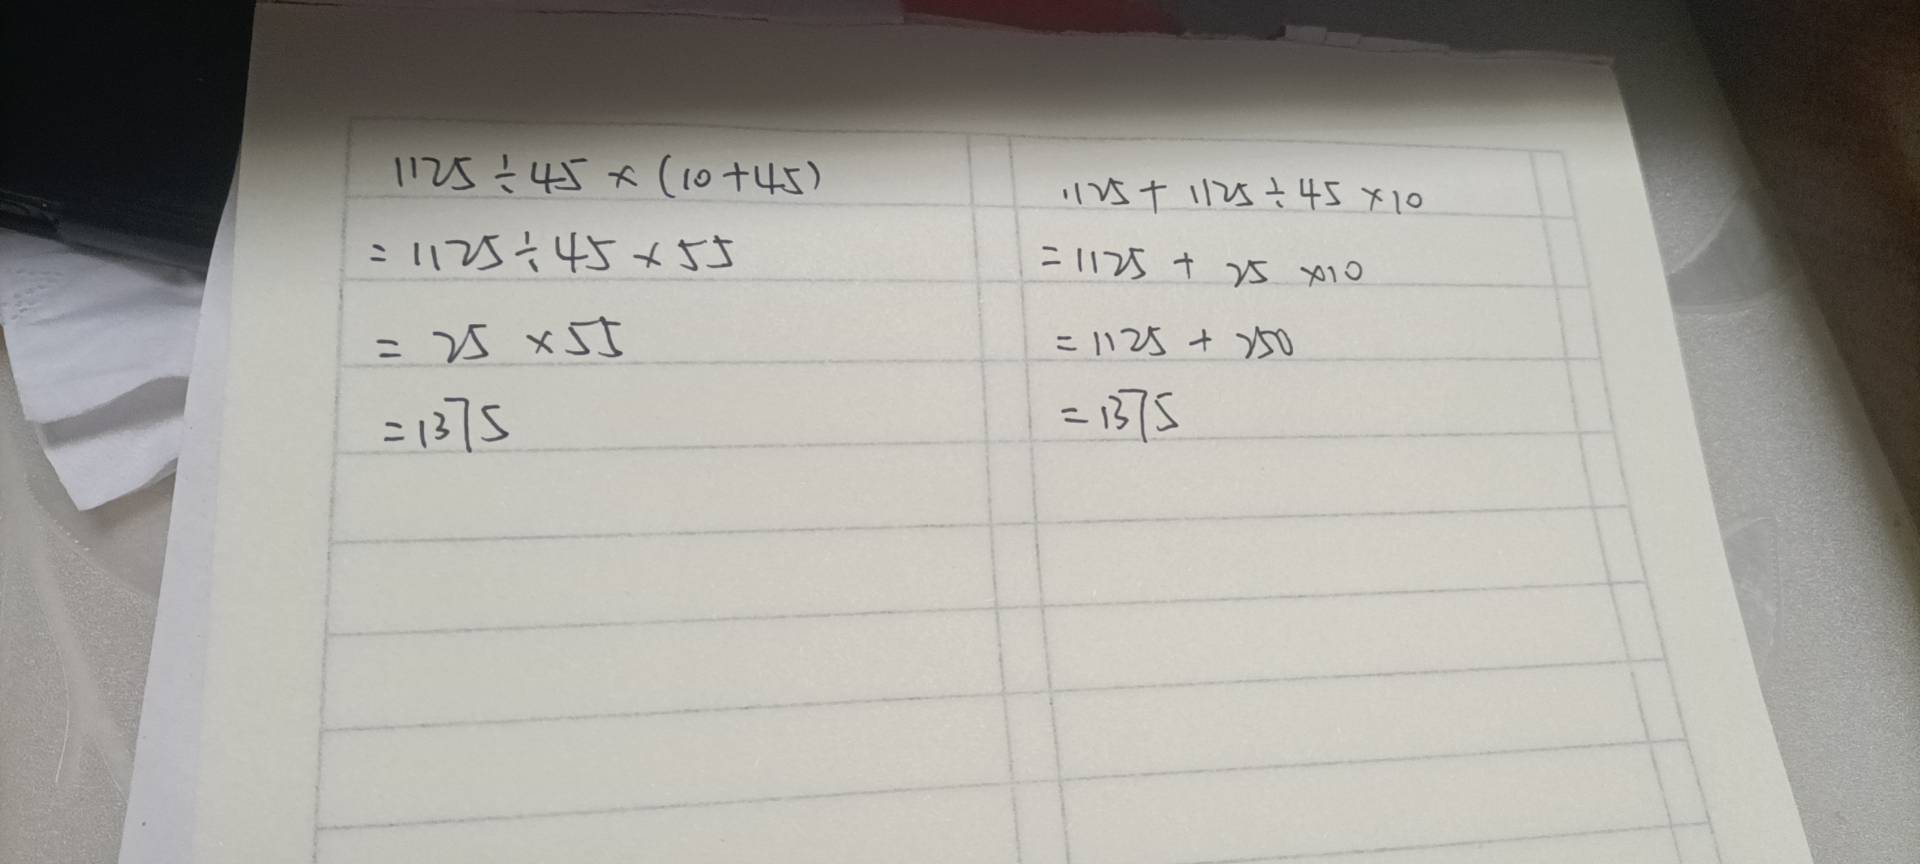 1125÷45×(10+45)
=1125÷45×55
=25×55
=1375
1125+1125÷45×10
=1125+25×10
=1125+250
=1375